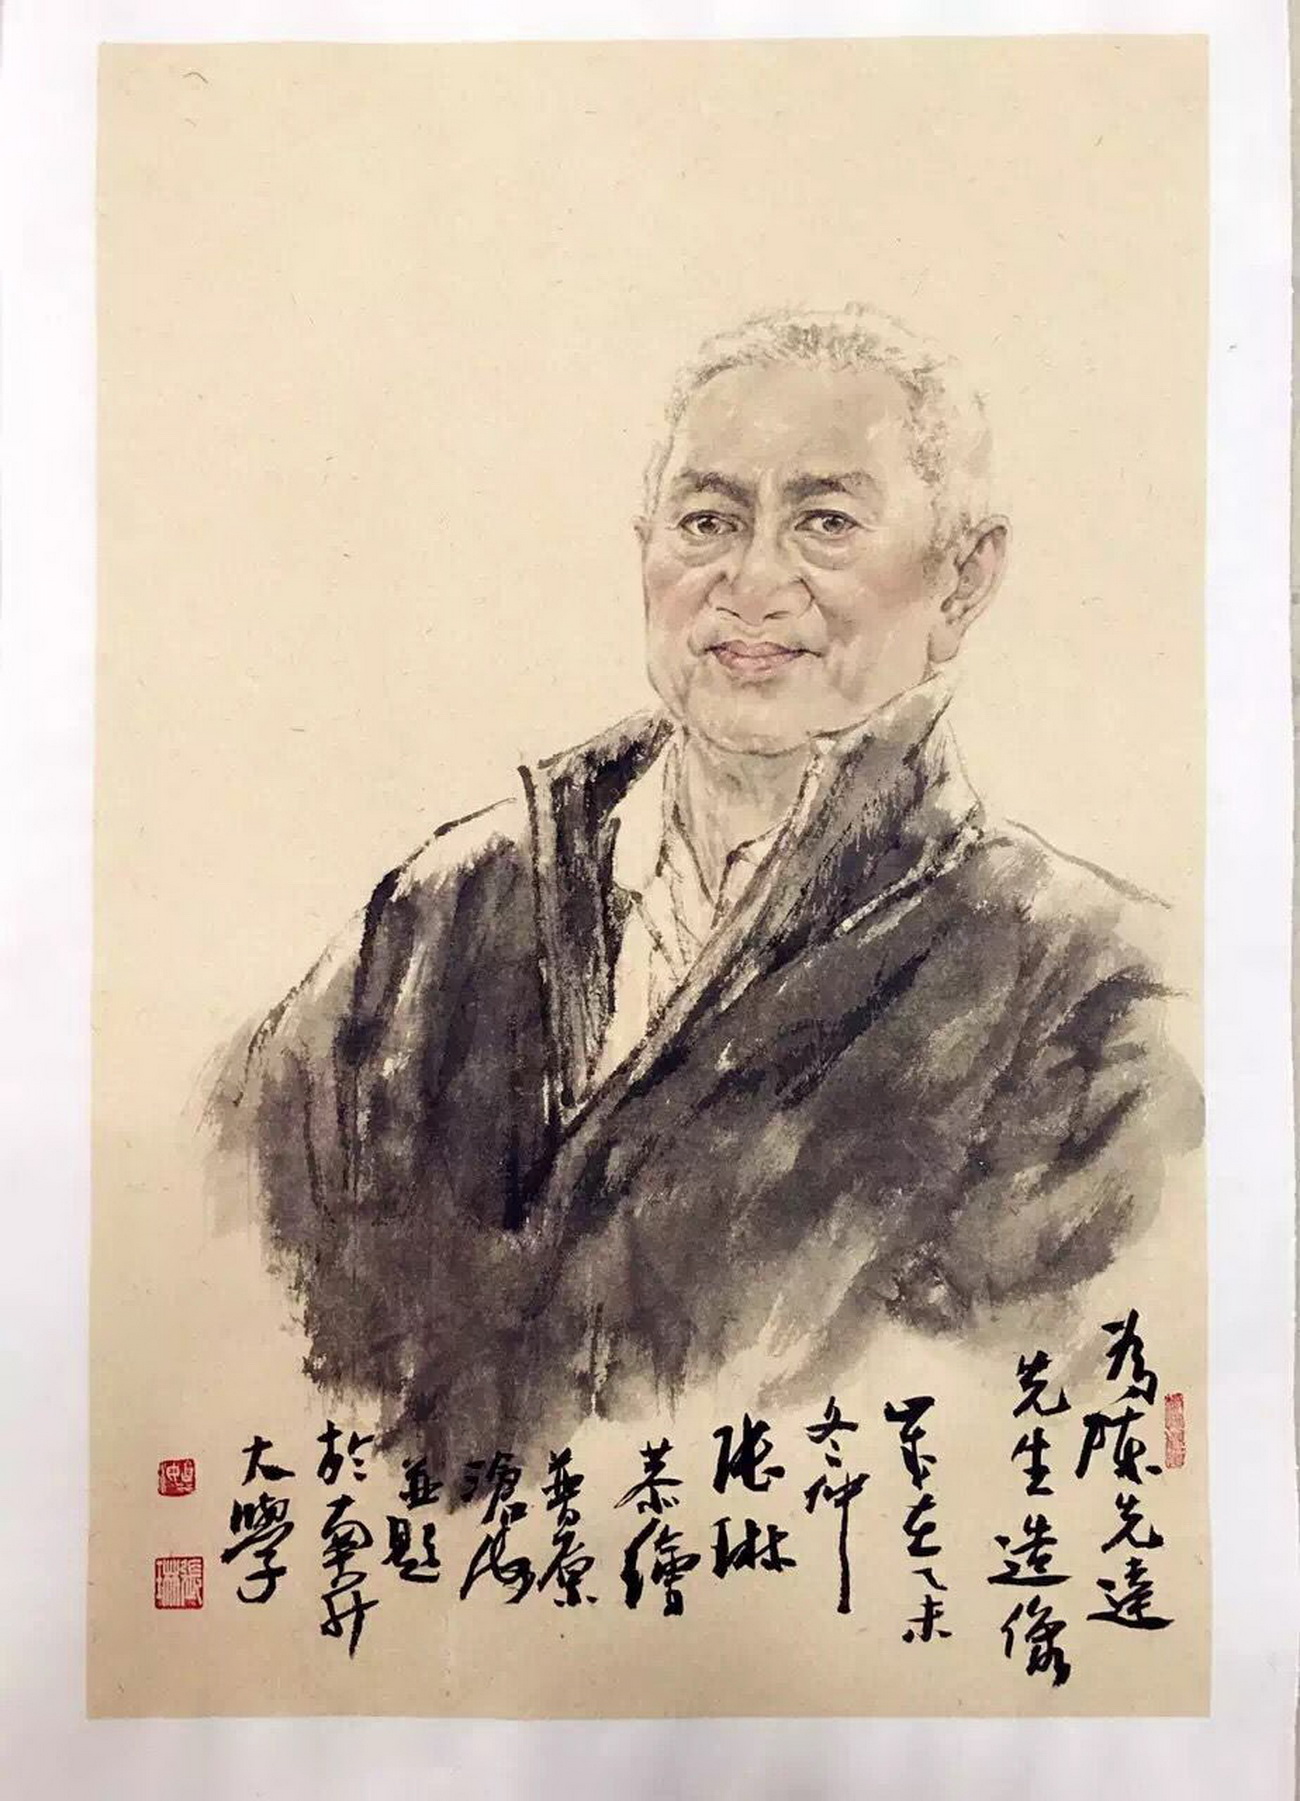 為陳先達
先生造像
歲在乙未
冬仲
張琳
恭繪
普原
滄海
並題
於南開
大學
張琳